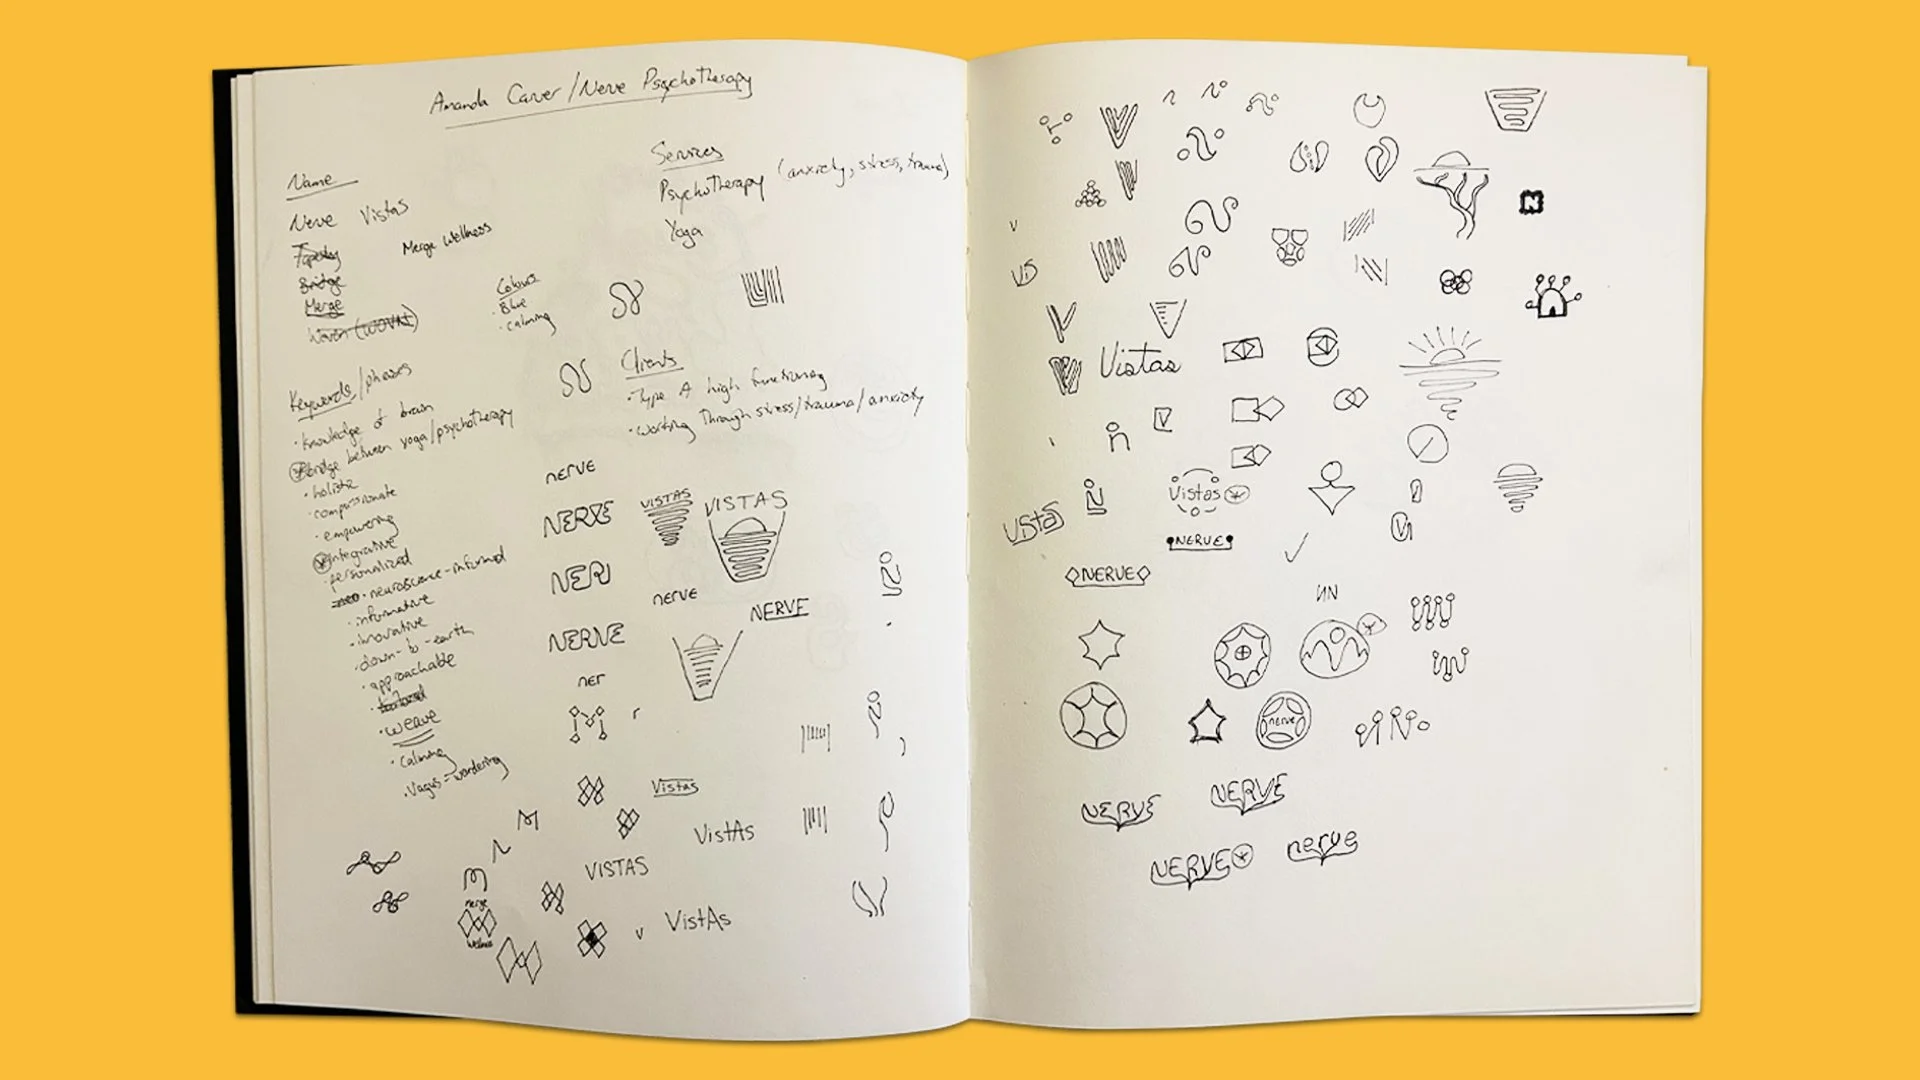 Amanda Carver / Nerve Psychotherapy
Name
Nerve Vistas
Tapestry
Merge Wellness
Bridge
Merge
Woven (WOVN)
Colours
· Blue
· calming
Services
Psychotherapy (anxiety, stress, trauma)
Yoga
Clients
· Type A high functioning
· working through stress/trauma/anxiety
Keywords/phrases
· knowledge of brain
bridge between yoga/psychotherapy
· holistic
· compassionate
· empowering
integrative
· personalized
· neuroscience-informed
· informative
· innovative
· down-to-earth
· approachable
· weave
· calming
· Vagus = wandering
nerve
NERVE
NERV
NERVE
ner
r
VISTAS
VISTAS
nerve
NERVE
Vistas
VistAs
VISTAS
v VistAs
M
merge
wellness
v
N
Vis
Vistas
V
n
Vistas
Vistas
NERVE
NERVE
NN
nerve
NERVE
NERVE
NERVE
nerve